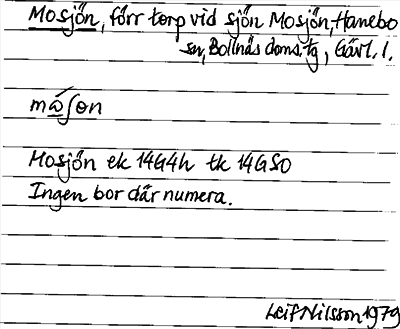 Mosjön, förr torp vid sjön Mosjön, Hanebo
sn, Bollnäs doms.tg, Gävl. l.
Mosjön ek 14G4h tk 14GSO
Ingen bor där numera.
Leif Nilsson 1979